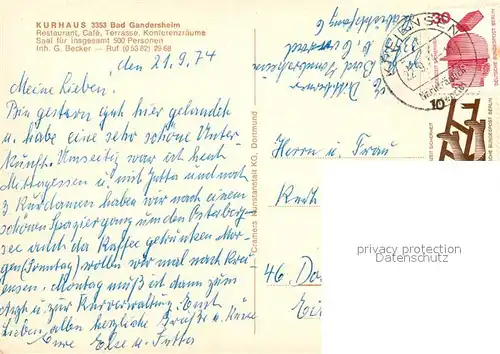 KURHAUS 3353 Bad Gandersheim
Restaurant, Café, Terrasse, Konferenzräume
Saal für insgesamt 500 Personen
Inh. G. Becker — Ruf (0 53 82) 29 68
, den 21.9.74
Meine Lieben.
Bin gestern gut hier gelandet
u. habe eine sehr schöne Unter
kunft. Umseitig war ich heut
Mittagessen u. mit Jutta und noch
3 Kurdamen haben wir nach einem
schönen Spaziergang um den Osterberg-
see auch da Kaffee getrunken Mor-
gen (Sonntag) wollen wir mal nach Krei
ensen. Montag muß ich dann zum
Arzt u. zur Kurverwaltung. Euch
Lieben allen herzliche Grüße u. Küsse
Eure Else u. Jutta
Cramers Kunstanstalt KG, Dortmund
Bad Gandersheim
KREIENSEN
30
DEUTSCHE BUNDESPOST BERLIN
10
Herrn u. Frau
Kurt
46 Do
privacy protection
Datenschutz